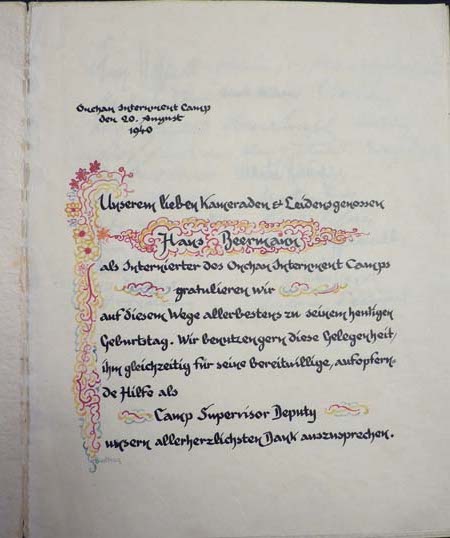 Onchan Internment Camp
den 20. August
1940
Unserem lieben Kameraden & Leidensgenossen
Hans Beermann
als Internierter des Onchan Internment Camps
gratulieren wir
auf diesem Wege allerbestens zu seinem heutigen
Geburtstag. Wir benutzen gern diese Gelegenheit,
ihm gleichzeitig für seine bereitwillige, aufopfern-
de Hilfe als
Camp Supervisor Deputy
unsern allerherzlichsten Dank auszusprechen.